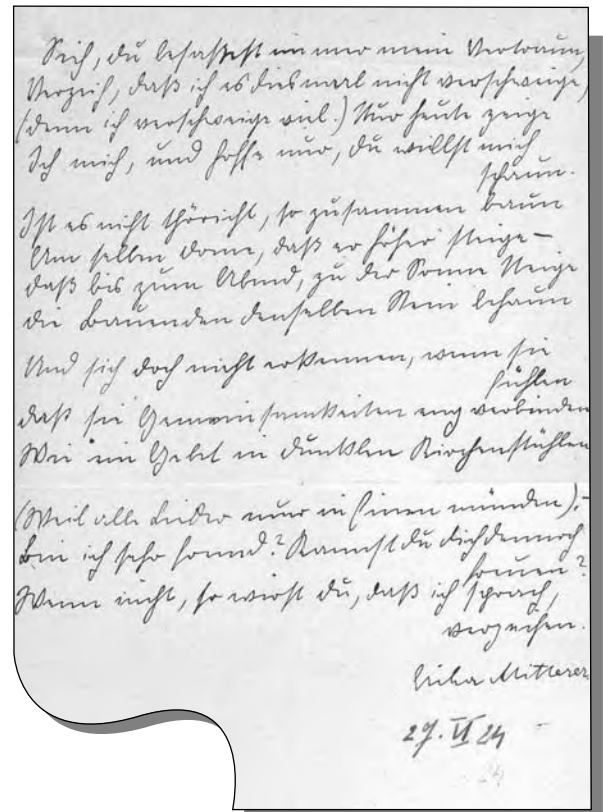 Sieh, du besaßest immer mein Vertraun,
Verzeih, daß ich es diesmal nicht verschweige,
(denn ich verschweige viel.) Nur heute zeige
Ich mich, und hoffe nur, du willst mich
schaun.
Ist es nicht thöricht, so zusammen baun
Am selben Dome, daß er höher steige –
daß bis zum Abend, zu der Sonne Neige
die Bauenden denselben Stein behaun
Und sich doch nicht erkennen, wenn sie
fühlen
daß sie Gemeinsamkeiten eng verbinden
Wie ein Gebet in dunklen Kirchenstühlen
(Weil alle Lieder nur in Einen münden).–
Bin ich sehr fremd? Kannst du dich dennoch
freuen?
Wenn nicht, so wirst du, daß ich sprach,
verzeihen.
Erika Mitterer
27. VI 24
24